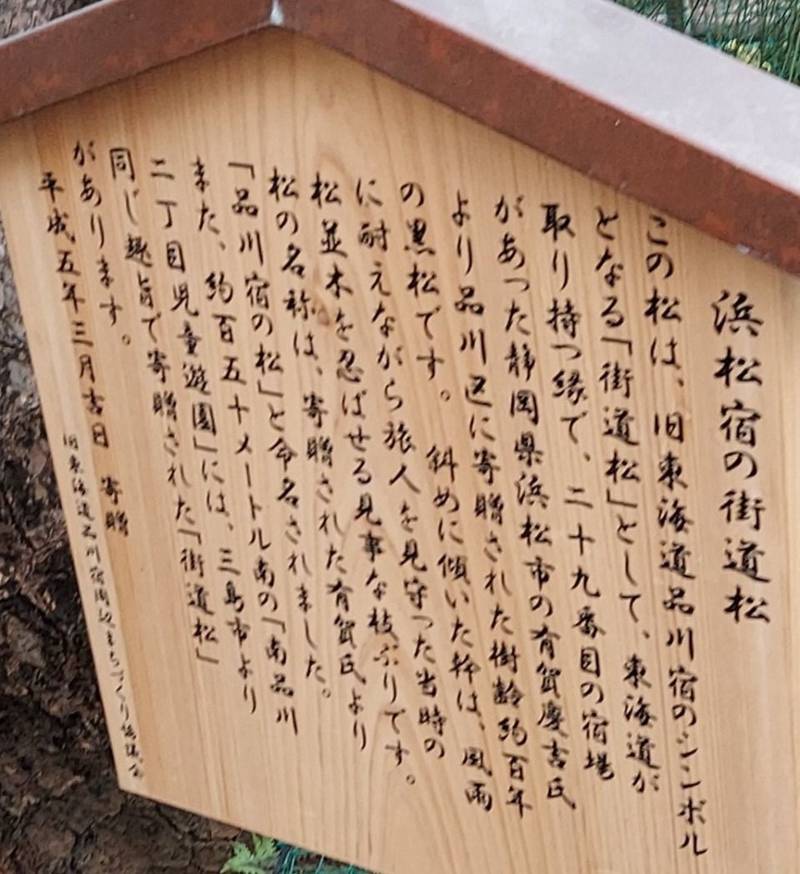 浜松宿の街道松
この松は、旧東海道品川宿のシンボル
となる「街道松」として、東海道が
取り持つ縁で、二十九番目の宿場
があった静岡県浜松市の有賀慶吉氏
より品川区に寄贈された樹齢約百年
の黒松です。　斜めに傾いた幹は、風雨
に耐えながら旅人を見守った当時の
松並木を忍ばせる見事な枝ぶりです。
松の名称は、寄贈された有賀氏より
「品川宿の松」と命名されました。
また、約百五十メートル南の「南品川
二丁目児童遊園」には、三島市より
同じ趣旨で寄贈された「街道松」
があります。
平成五年三月吉日　寄贈
旧東海道品川宿周辺まちづくり協議会